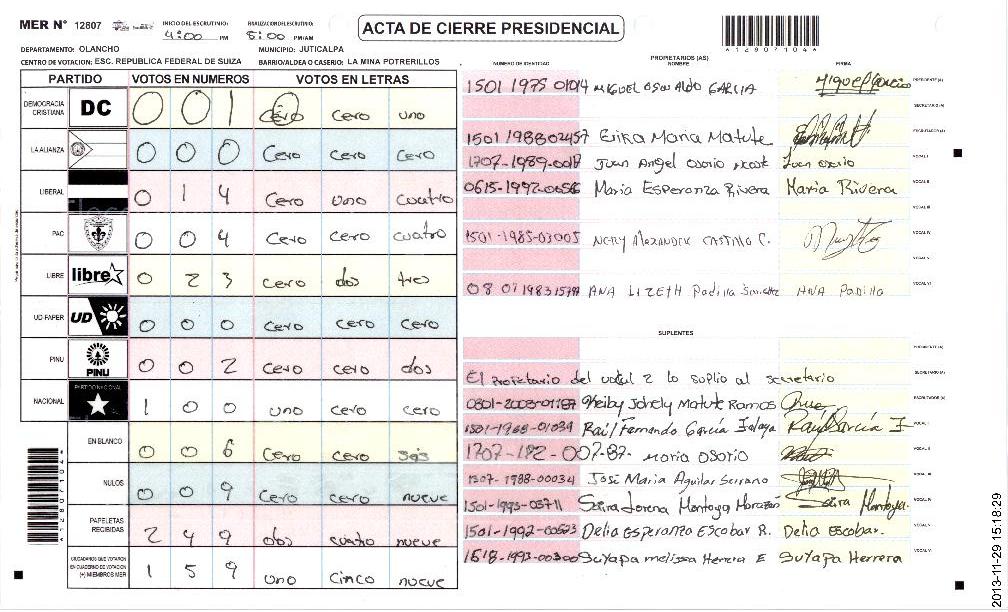 MER N° 12807
INICIO DEL ESCRUTINIO: 4:00 PM
FINALIZACION DEL ESCRUTINIO: 5:00 PM/AM
ACTA DE CIERRE PRESIDENCIAL
12807104
DEPARTAMENTO: OLANCHO
MUNICIPIO: JUTICALPA
CENTRO DE VOTACION: ESC. REPUBLICA FEDERAL DE SUIZA
BARRIO/ALDEA O CASERIO: LA MINA POTRERILLOS
PARTIDO VOTOS EN NUMEROS VOTOS EN LETRAS
DEMOCRACIA CRISTIANA DC 0 0 1 Cero Cero uno
LA ALIANZA 0 0 0 Cero Cero Cero
LIBERAL 0 1 4 Cero Uno cuatro
PAC 0 0 4 Cero Cero cuatro
LIBRE libre 0 2 3 Cero dos tres
UD-FAPER UD 0 0 0 Cero Cero Cero
PINU PINU 0 0 2 Cero Cero dos
NACIONAL PARTIDO NACIONAL 1 0 0 uno Cero Cero
EN BLANCO 0 0 6 Cero Cero seis
NULOS 0 0 9 Cero Cero nueve
PAPELETAS RECIBIDAS 2 4 9 dos cuatro nueve
CIUDADANOS QUE VOTARON EN CUADERNO DE VOTACION (+) MIEMBROS MER 1 5 9 Uno Cinco nueve
12807104
PROPIETARIOS (AS)
NUMERO DE IDENTIDAD NOMBRE FIRMA
1501 1975 01014 MIGUEL OSWALDO GARCIA Miguel Garcia PRESIDENTE (A)
SECRETARIO (A)
1501 1988 02457 Erika Maria Matute ESCRUTADOR (A)
1707-1989-0017 Juan Angel Osorio Juan Osorio VOCAL I
0615-1992-0656 Maria Esperanza Rivera Maria Rivera VOCAL II
VOCAL III
1501-1985-03005 NERY ALEXANDER CASTILLO C. VOCAL IV
VOCAL V
08 01 1983 ANA LIZETH Padilla Sanchez ANA Padilla VOCAL VI
SUPLENTES
PRESIDENTE (A)
El propietario del vocal 2 lo suplio al secretario SECRETARIO (A)
0801-2003-01187 Keiby Johely Matute Ramos ESCRUTADOR (A)
1501-1968-01034 Raúl Fernando García Raul García VOCAL I
1707-182-007-87- Maria OSORIO VOCAL II
1707-1988-00034 José Maria Aguilar Serrano VOCAL III
1501-1993-03711 Lorena Montoya Montoya VOCAL IV
1501-1992-00523 Delia Esperanza Escobar R. Delia Escobar. VOCAL V
1518-1993-00300 Suyapa melissa Herrera E Suyapa Herrera VOCAL VI
2013-11-29 15:18:29